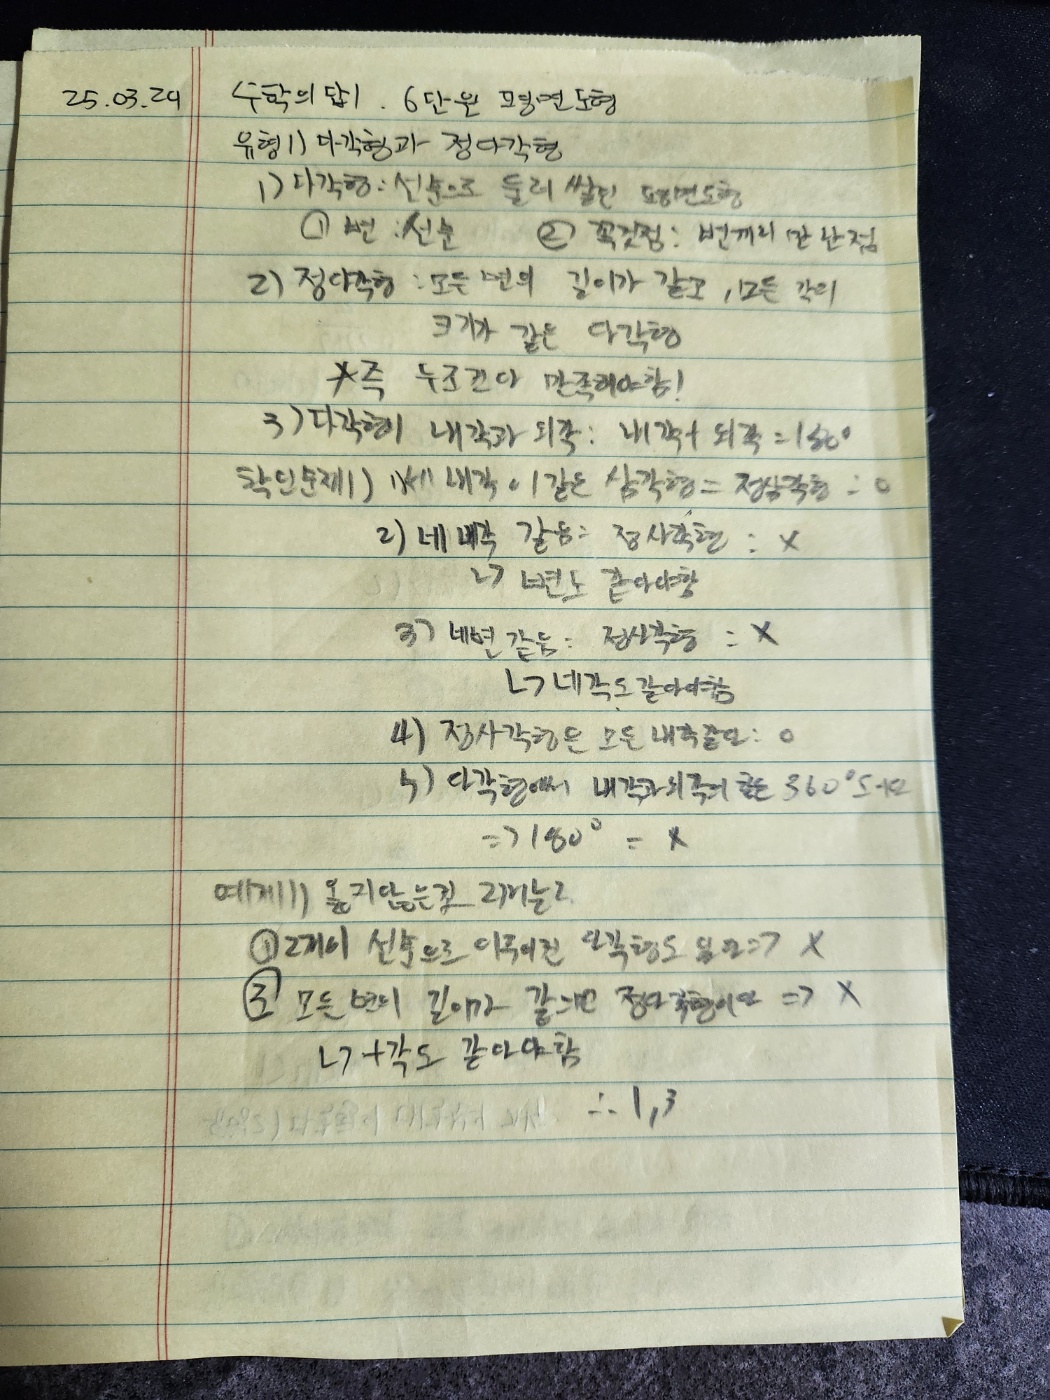 25.03.29 수학의 답1. 6단원 평면도형
유형1) 다각형과 정다각형
1) 다각형: 선분으로 둘러 쌓인 평면도형
① 변: 선분 ② 꼭짓점: 변끼리 만난 점
2) 정다각형: 모든 변의 길이가 같고, 모든 각의
크기가 같은 다각형
*즉 두조건 다 만족해야함!
3) 다각형의 내각과 외각: 내각+외각=180°
확인문제1) 1)세 내각이 같은 삼각형= 정삼각형: o
2) 네 내각 같음= 정사각형: x
↳ 변도 같아야함
3) 네변 같음: 정사각형 = x
↳ 네각도 같아야함
4) 정사각형은 모든 내각같다: o
5) 다각형에서 내각과 외각의 합은 360°
=> 180° = x
예제1) 옳지않은것 고르는?
① 2개의 선분으로 이루어진 다각형도 있다=> x
③ 모든 변의 길이가 같으면 정다각형이다 => x
↳ +각도 같아야함
∴ 1,3